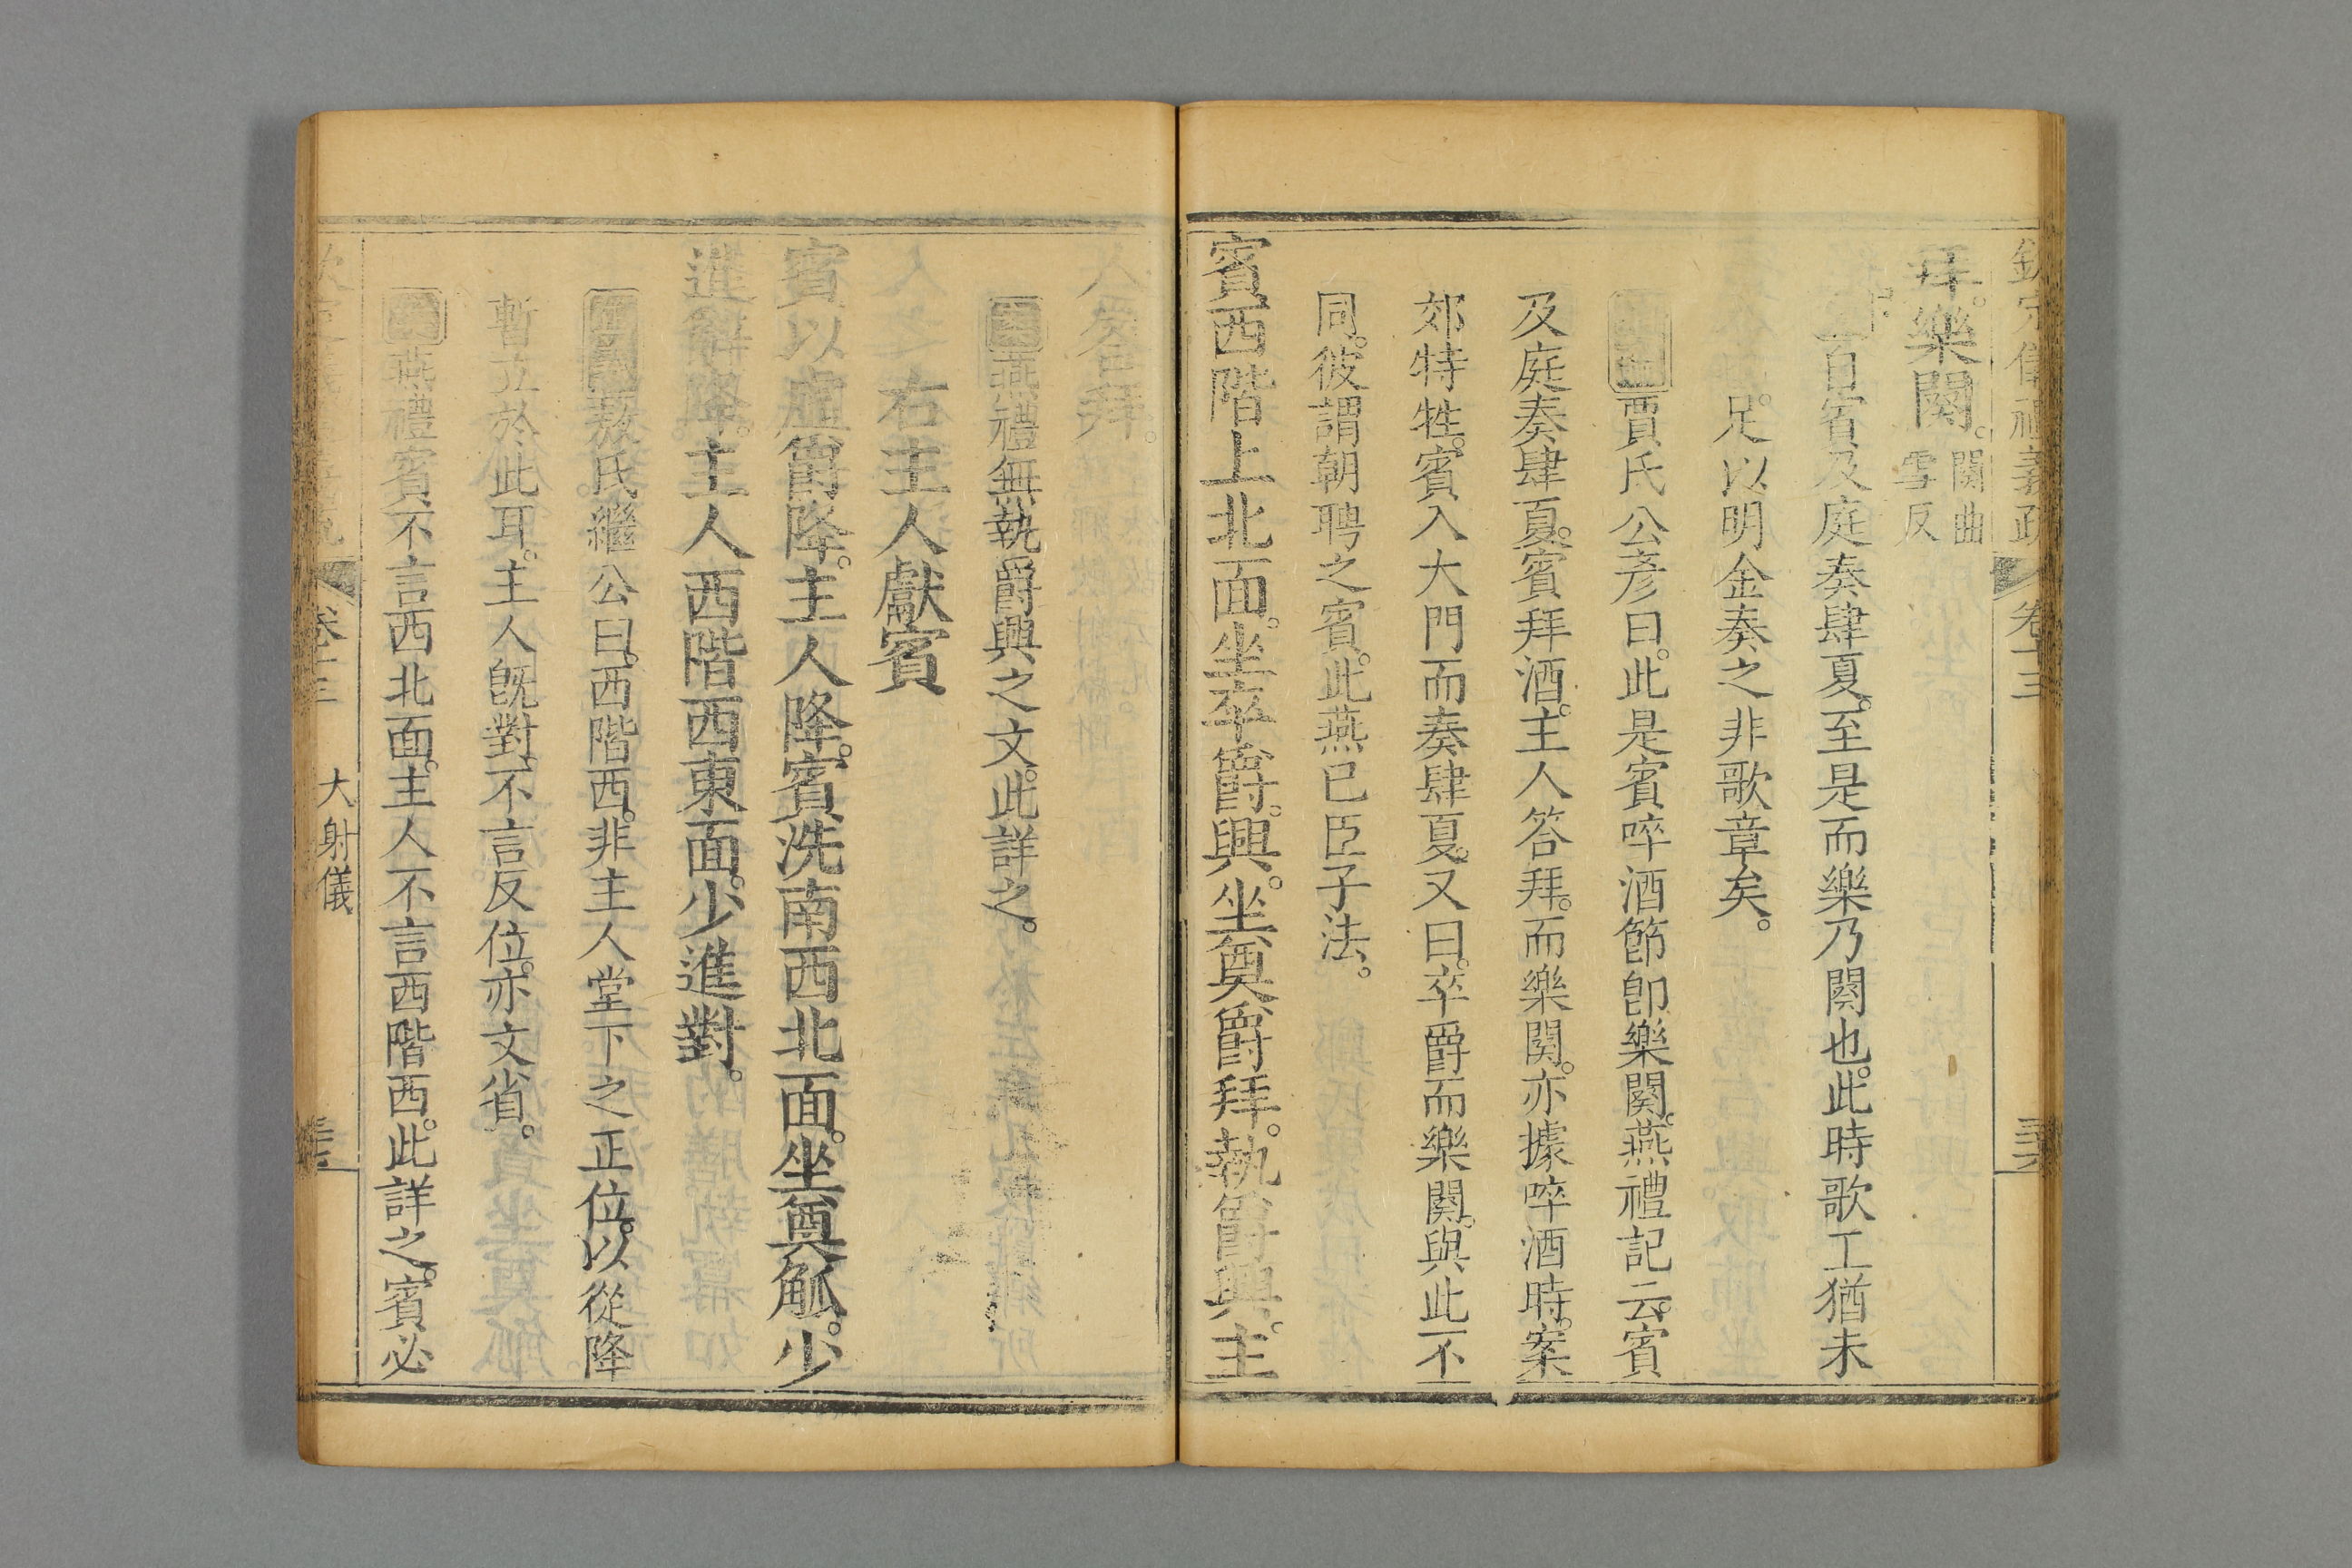 欽定儀禮義疏 卷十三
拜。樂闋。闋曲
雪反
自賓及庭奏肆夏。至是而樂乃闋也。此時歌工猶未
足。以明金奏之非歌章矣。
賈氏公彥曰。此是賓啐酒節卽樂闋。燕禮記云。賓
及庭奏肆夏。賓拜酒。主人答拜。而樂闋。亦據啐酒時。案
郊特牲。賓入大門而奏肆夏。又曰。卒爵而樂闋。與此不
同。彼謂朝聘之賓。此燕已臣子法。
賓西階上北面。坐卒爵。興。坐奠爵拜。執爵興。主
人答拜。
燕禮無執爵興之文。此詳之。
右主人獻賓
賓以虛爵降。主人降。賓洗南西北面。坐奠觚。少
進辭降。主人西階西東面。少進對。
敖氏繼公曰。西階西。非主人堂下之正位。以從降
暫立於此耳。主人旣對。不言反位。亦文省。
燕禮賓不言西北面。主人不言西階西。此詳之。賓必
卷十三 大射儀